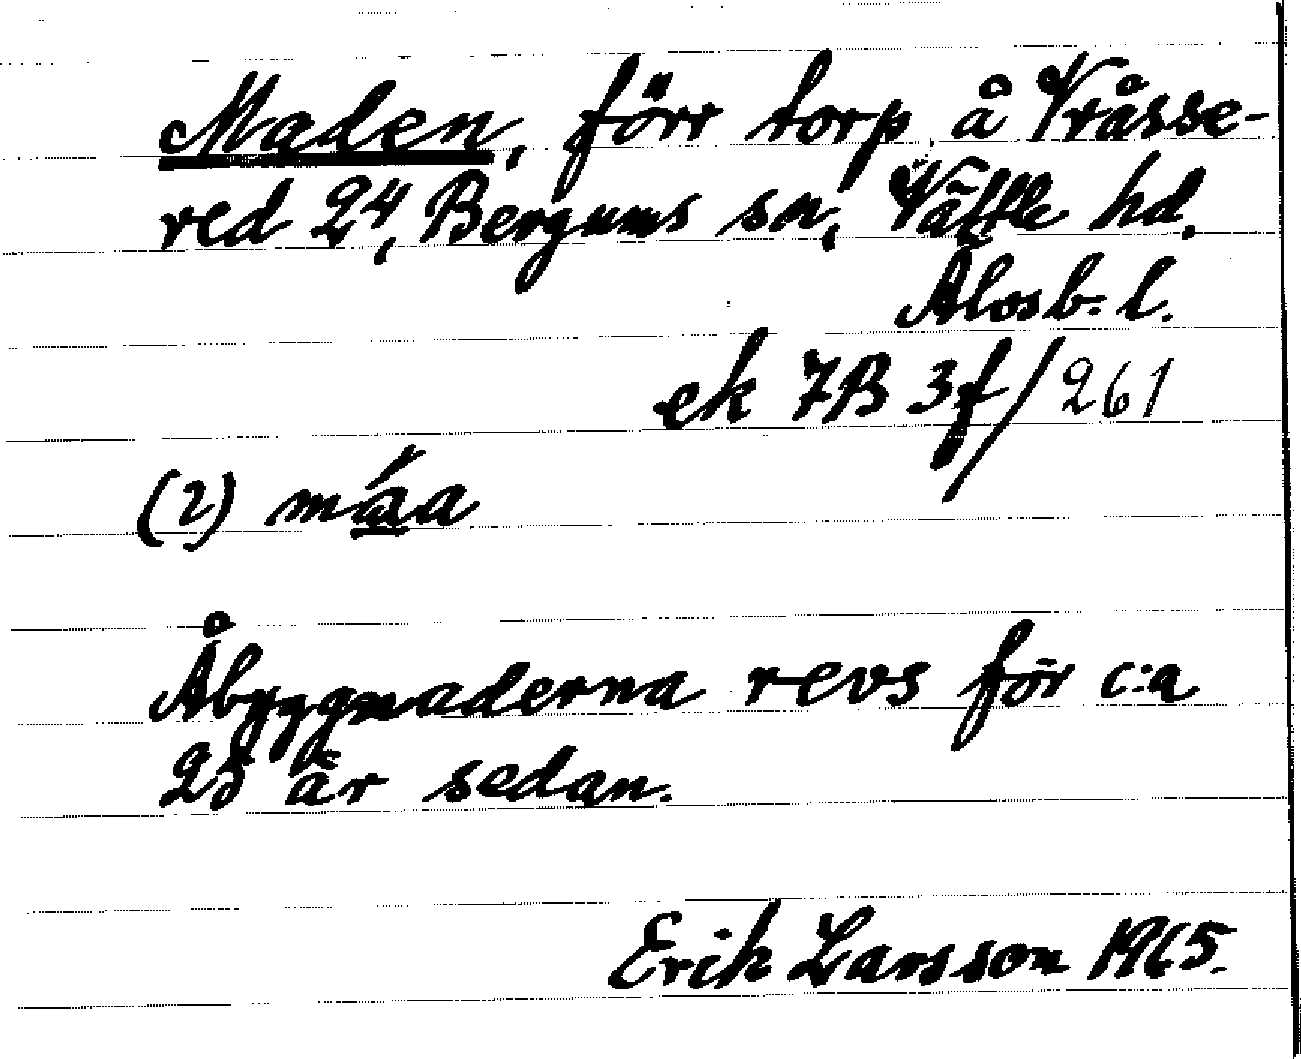 Maden, förr torp å Vråsse-
red 24, Bergums sn, Vättle hd,
Älvsb. l.
ek 7B 3f/261
(2) máa
Åbyggnaderna revs för c:a
25 år sedan.
Erik Larsson 1965.